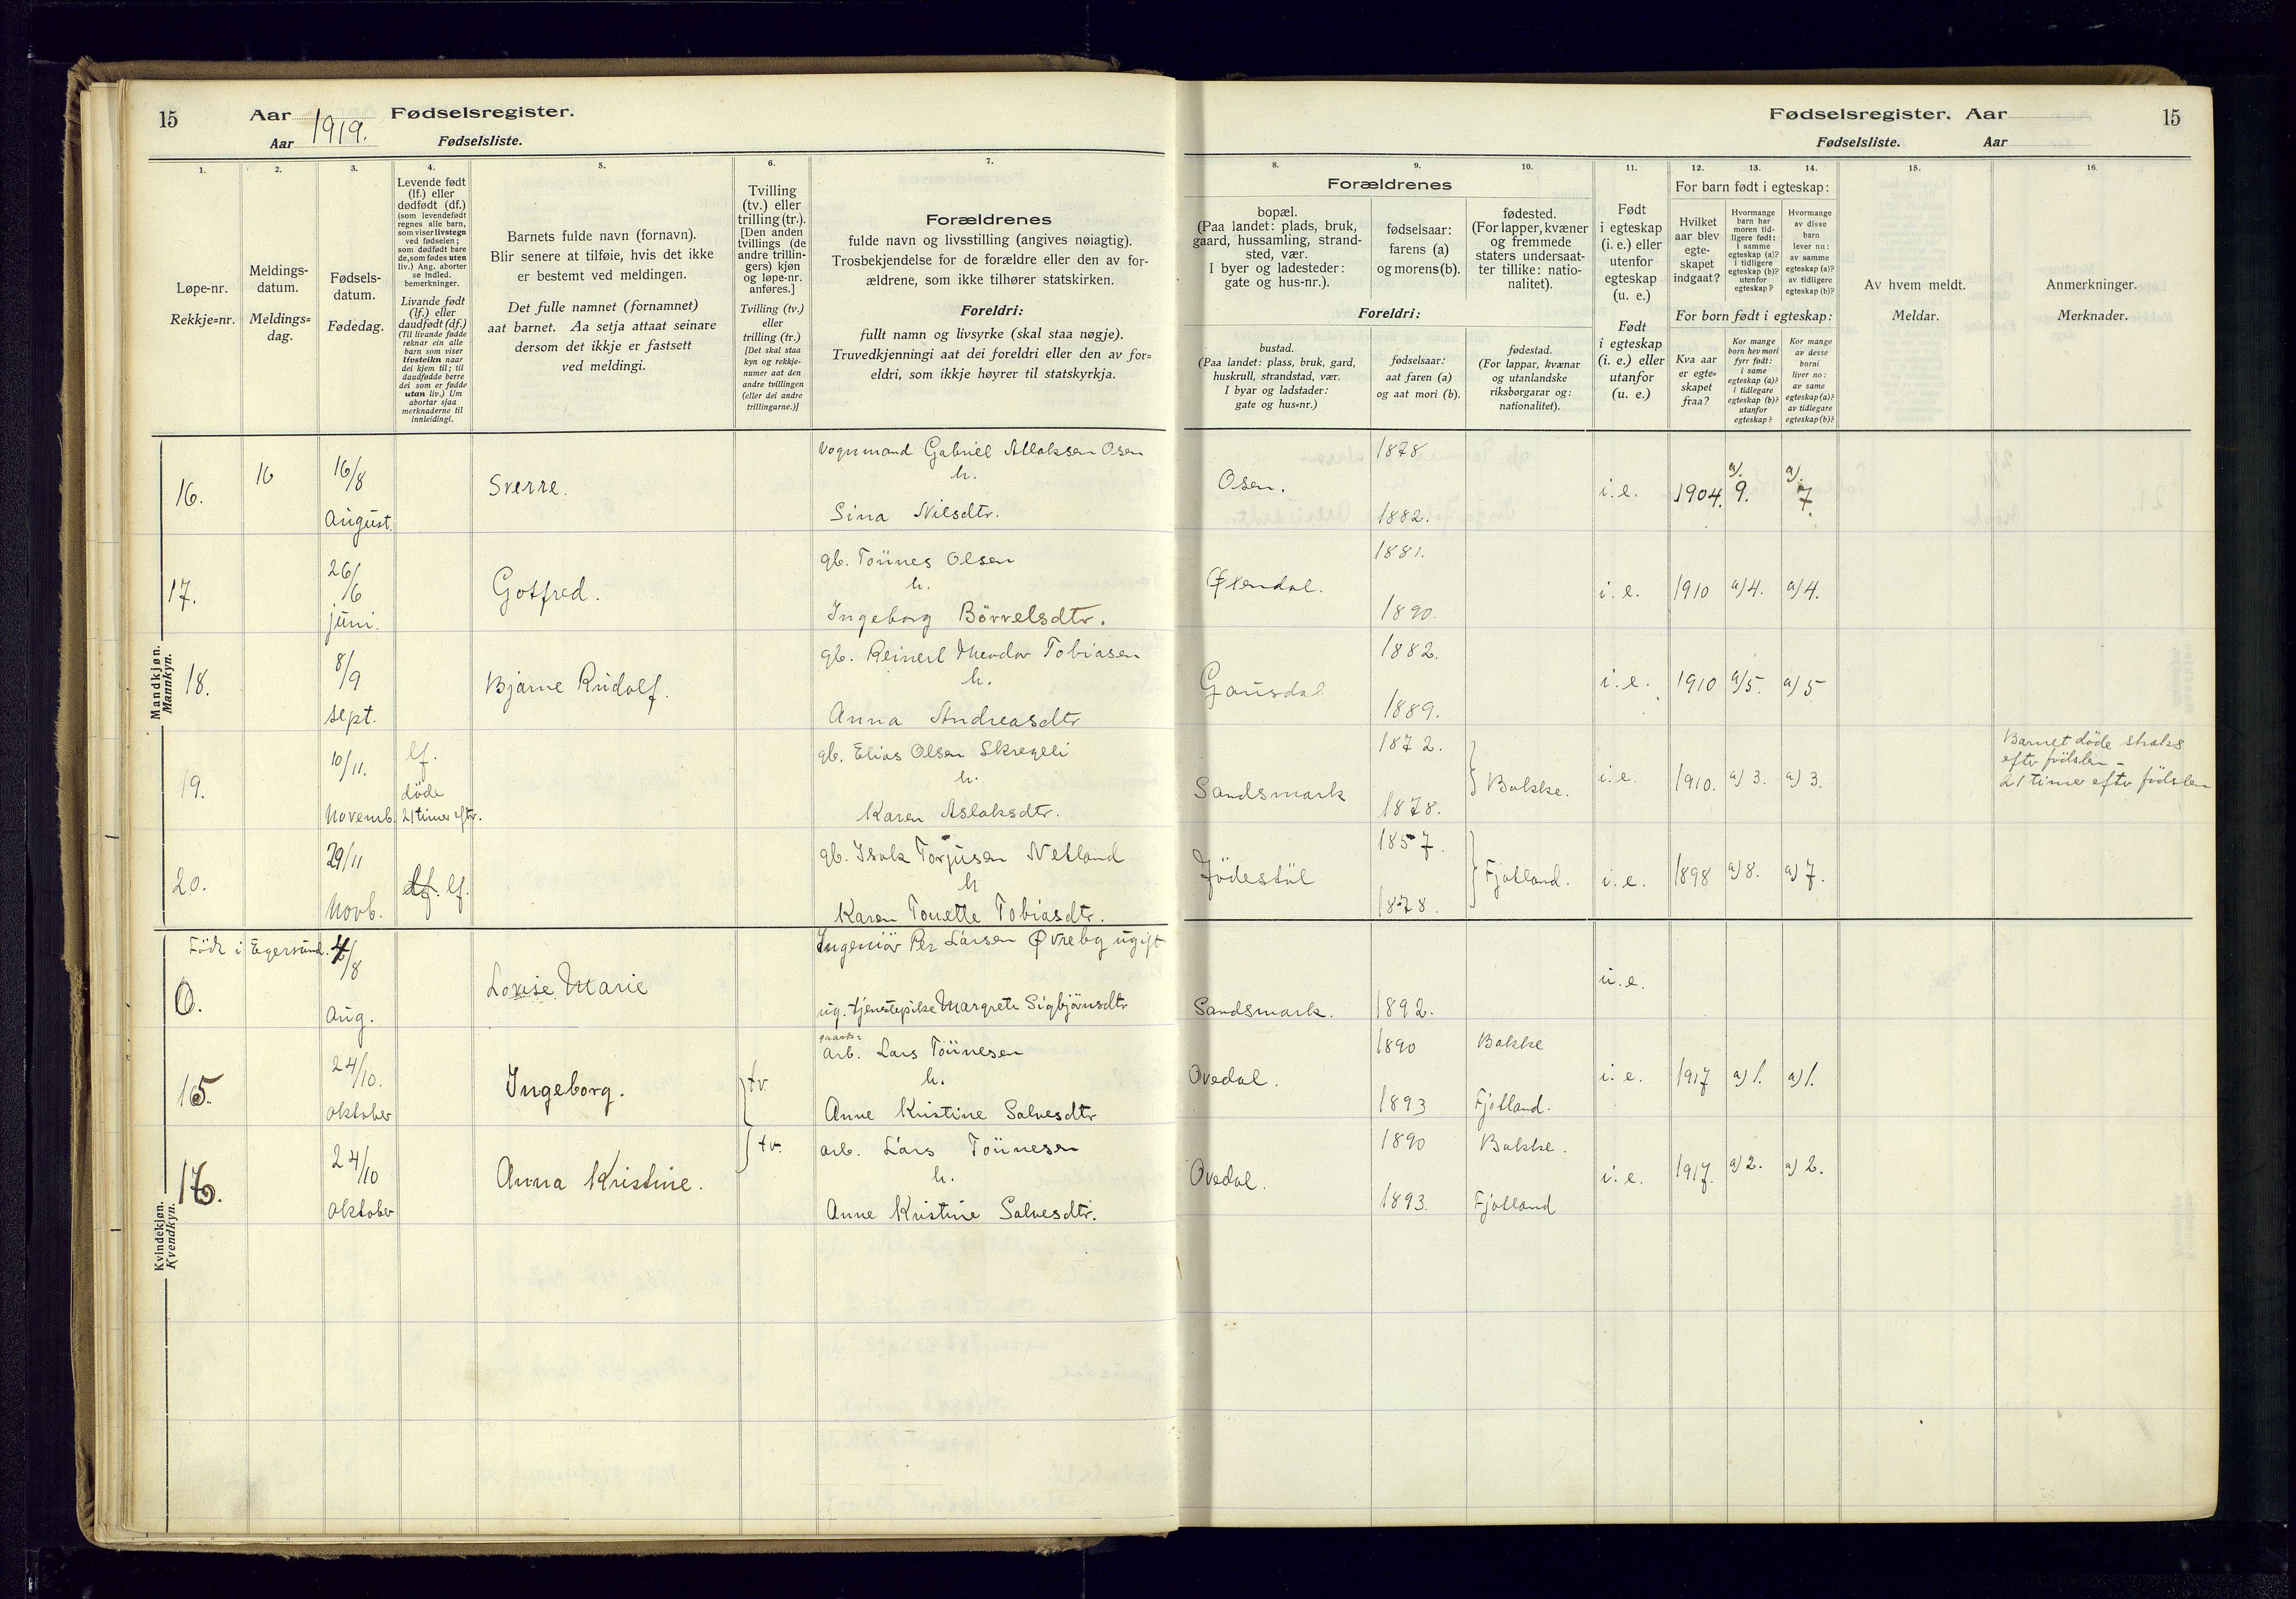 15
Aar 1919. Fødselsregister.
Aar Fødselsliste.
Fødselsregister. Aar
Fødselsliste. Aar
15
1.
Løpe-nr.
Rekkje-nr.
2.
Meldings-
datum.
Meldings-
dag.
3.
Fødsels-
datum.
Fødedag.
4.
Levende født
(lf.) eller
dødfødt (df.)
(som levendefødt
regnes alle barn,
som viser livstegn
ved fødselen;
som dødfødt bare
de, som fødes uten
liv.) Ang. aborter
se indled.
bemerkninger.
Livande født
(lf.) eller
daudfødt (df.)
(Til livande fødde
reknar ein alle
barn som viser
livsteikn naar
dei kjem til; til
daudfødde berre
dei som er fødde
utan liv.) Um
abortar sjaa
merknaderne til
innleidingi.
5.
Barnets fulde navn (fornavn).
Blir senere at tilføie, hvis det ikke
er bestemt ved meldingen.
Det fulle namnet (fornamnet)
aat barnet. Aa setja attaat seinare
dersom det ikkje er fastsett
ved meldingi.
6.
Tvilling
(tv.) eller
trilling (tr.).
[Den anden
tvillings (de
andre trillin-
gers) kjøn
og løpe-nr.
anføres.]
Tvilling (tv.)
eller
trilling (tr.)
[Det skal staa
kyn og rekkje-
numer aat den
andre tvillingen
(eller dei andre
trillingarne.)]
7.
Forældrenes
fulde navn og livsstilling (angives nøiagtig).
Trosbekjendelse for de forældre eller den av for-
ældrene, som ikke tilhører statskirken.
Foreldri:
fullt namn og livsyrke (skal staa nøgje).
Truvedkjenningi aat dei foreldri eller den av for-
eldri, som ikkje høyrer til statskyrkja.
Forældrenes
8.
bopæl.
(Paa landet: plads, bruk,
gaard, hussamling, strand-
sted, vær.
I byer og ladesteder:
gate og hus-nr.).
9.
fødselsaar:
farens (a)
og morens (b).
10.
fødested.
(For lapper, kvæner
og fremmede
staters undersaat-
ter tillike: natio-
nalitet).
Foreldri:
bustad.
(Paa landet: plass, bruk, gard,
huskrull, strandstad, vær.
I byar og ladstader:
gate og hus-nr.)
fødselsaar:
aat faren (a)
og aat mori (b).
fødestad.
(For lappar, kvænar
og utanlandske
riksborgarar og:
nationalitet).
11.
Født
i egteskap
(i. e.) eller
utenfor
egteskap
(u. e.)
Født
i egteskap
(i. e.) eller
utanfor
(u. e.)
For barn født i egteskap:
12.
Hvilket
aar blev
egte-
skapet
indgaat?
13.
Hvormange
barn har
moren tid-
ligere født:
i samme
egteskap (a)?
i tidligere
egteskap (b)?
utenfor
egteskap?
14.
Hvormange
av disse
barn
lever nu:
av samme
egteskap (a)?
av tidligere
egteskap (b)?
For born født i egteskap:
Kva aar
er egte-
skapet
fraa?
Kor mange
born hev mori
fyrr født:
i same
egteskap (a)?
i tidlegare
egteskap (b)?
utanfor
egteskap?
Kor mange
av desse
borni
liver no:
av same
egteskap (a)?
av tidlegare
egteskap (b)?
15.
Av hvem meldt.
Meldar.
16.
Anmerkninger.
Merknader.
Mandkjøn.
Mannkyn.
16. 16 16/8 August. Sverre. Vognmand Gabriel Atlaksen Osen
h.
Sina Nilsdtr.
Osen. 1878. 1882. i. e. 1904. a/. 9. a/. 7.
17. 26/6 juni. Gotfred. gb. Tønnes Olsen
h.
Ingeborg Børrelsdtr.
Øxendal. 1881. 1890. i. e. 1910 a/4. a/4.
18. 8/9 sept. Bjarne Rudolf. gb. Reinert Theodor Tobiasen
h.
Anna Andreasdtr
Gausdal 1882. 1889. i. e. 1910 a/5. a/5
19. 10/11. Novemb. lf. døde 21 timer eftr. gb. Elias Olsen Skregeli
h.
Karen Aslaksdtr.
Sandsmark 1872. 1878. Bakke. i. e. 1910. a) 3. a) 3.
Barnet døde straks
eftr fødslen –
21 timer eftr fødslen
20. 29/11 Novb. df. lf. gb. Isak Torjusen Netland
h
Karen Tonette Tobiasdtr.
Jødestøl 1857. 1878. Fjotland. i. e. 1898 a) 8. a) 7.
Kvindekjøn.
Kvendkyn.
Född i Egersund.
0. 4/8 Aug. Lovise Marie Ingeniør Per Larsen Øvreby ugift
ug. tjenestepike Margrete Sigbjørnsdtr
Sandsmark. 1892. u. e.
15. 24/10. oktober Ingeborg. tv. arb. Lars Tønnesen
h.
Anne Kristine Salvesdtr
Ovedal. 1890 1893 Bakke Fjotland. i. e. 1917 a) 1. a) 1.
16. 24/10 oktober Anna Kristine. tv. arb. Lars Tønnesen
h.
Anne Kristine Salvesdtr.
Ovedal. 1890 1893. Bakke. Fjotland i. e. 1917. a) 2. a) 2.